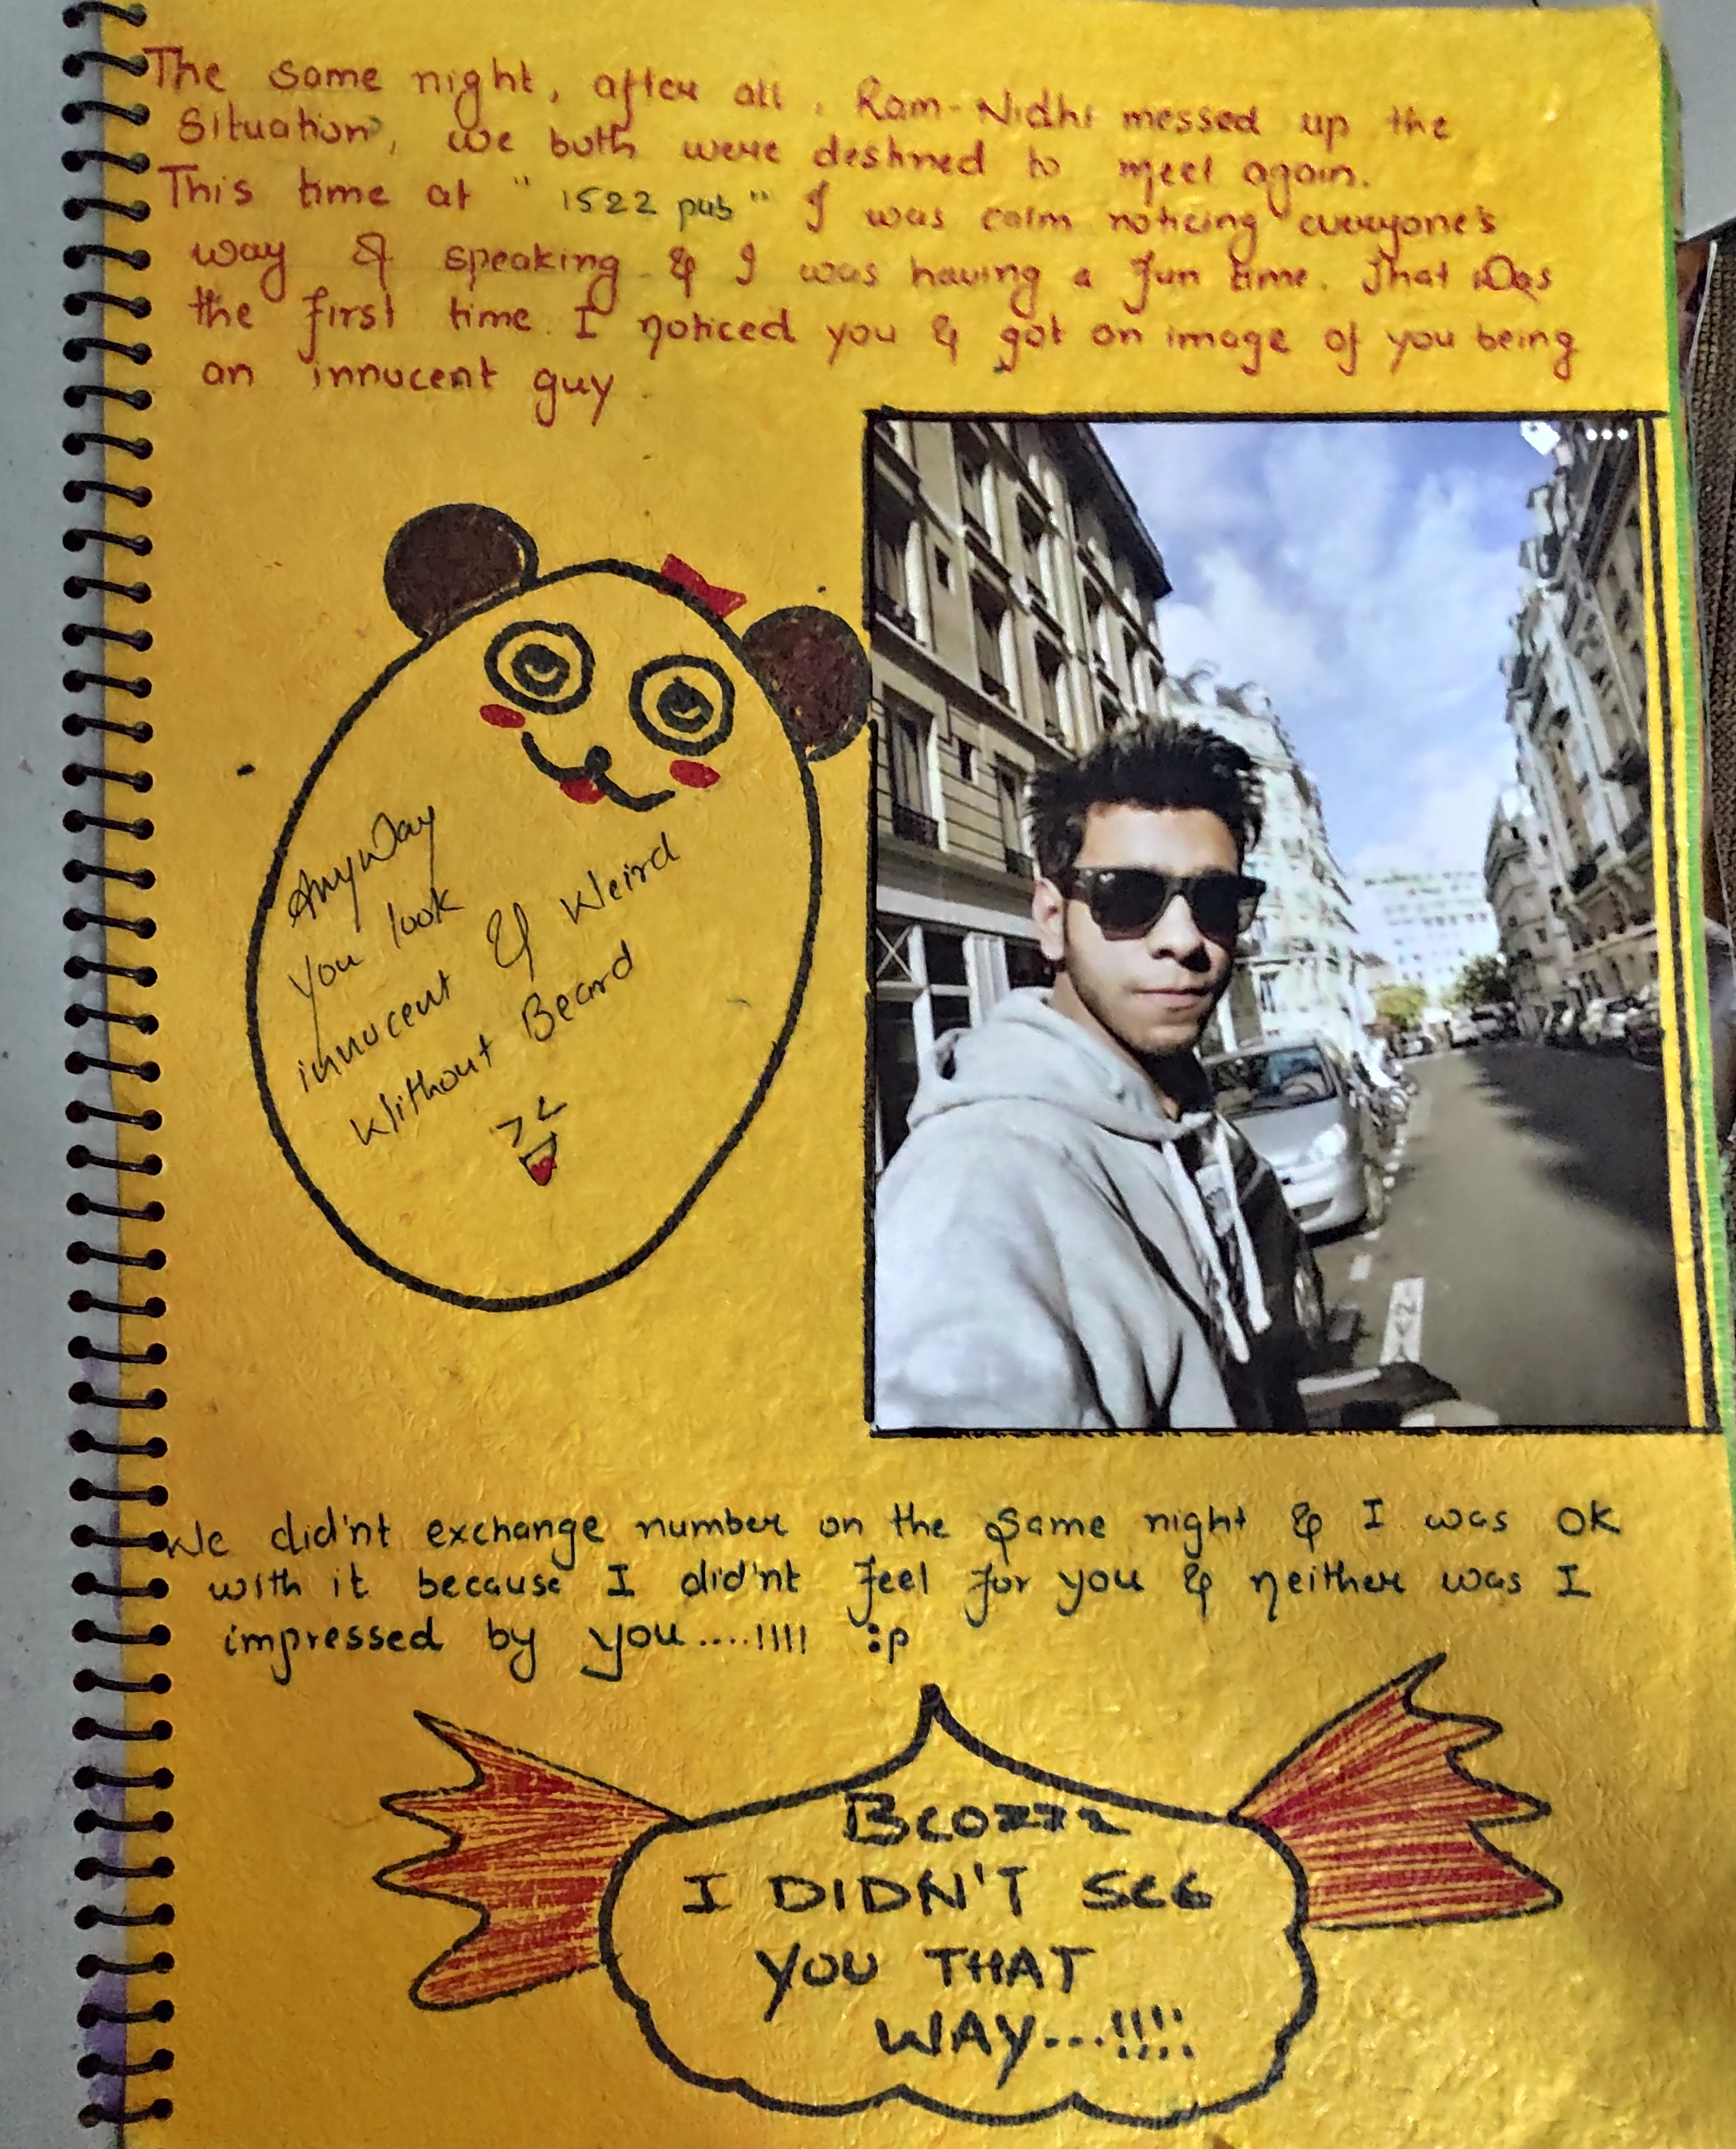 The same night, after all, Ram-Nidhi messed up the
Situation, we both were destined to meet again.
This time at "1522 pub" I was calm noticing everyone's
way & speaking & I was having a fun time. That was
the first time I noticed you & got an image of you being
an innucent guy
Anyway
You look
innucent & Weird
Without Beard
We did'nt exchange number on the same night & I was ok
with it because I did'nt feel for you & neither was I
impressed by you....!!!! :p
BCOZZZ
I DIDN'T SEE
YOU THAT
WAY...!!!!